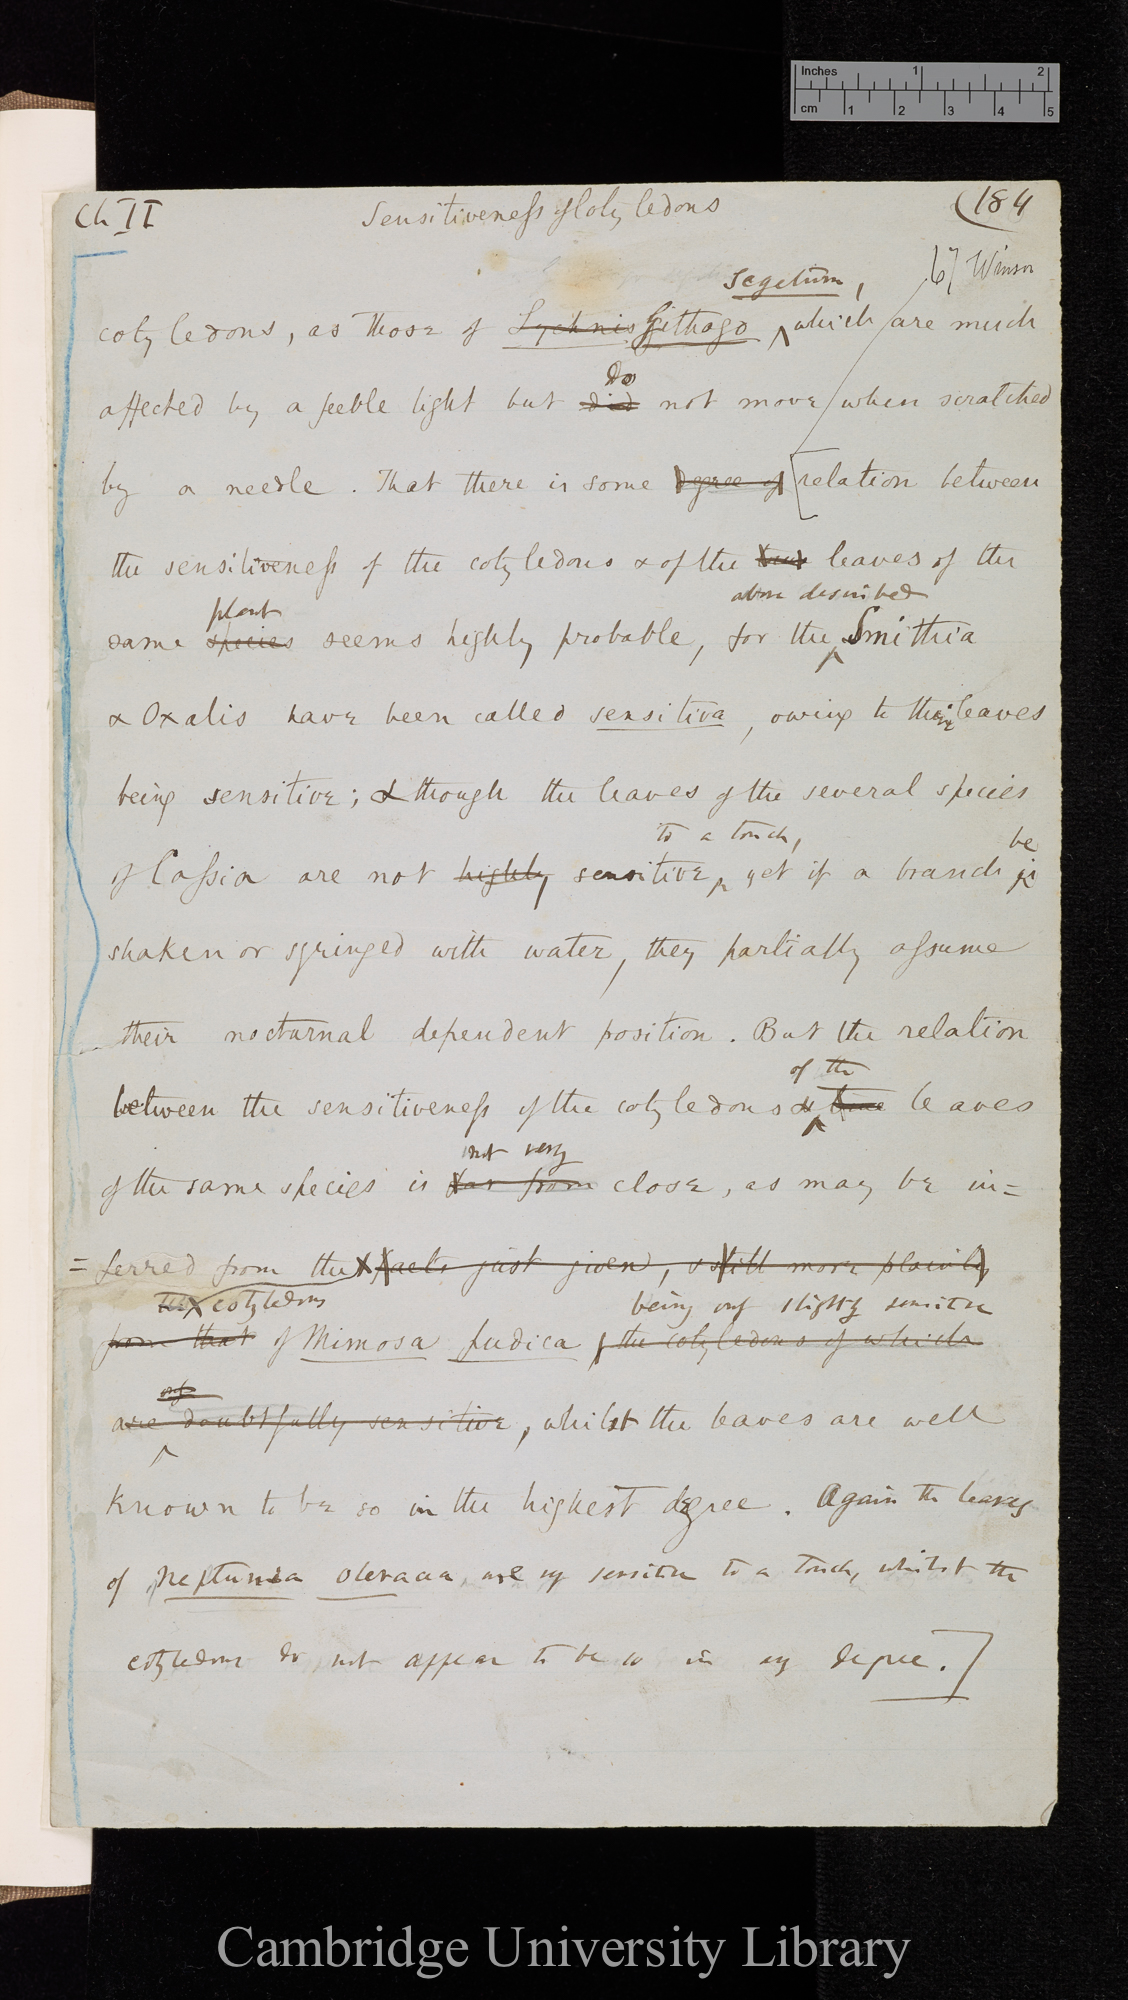 Inches 1 2
cm 1 2 3 4 5
Ch II Sensitiveness of Cotyledons (184
67 Winson
segetum,
cotyledons, as those of Lychnis Githago which are much
do
affected by a feeble light but did not move when scratched
by a needle. That there is some degree of [relation between
the sensitiveness of the cotyledons & of the leaves of the
plant above described
same species seems highly probable, for the Smithia
& Oxalis have been called sensitiva, owing to their leaves
being sensitive; & though the leaves of the several species
to a touch, be
of Cassia are not highly sensitive, yet if a branch is
shaken or syringed with water, they partially assume
their nocturnal dependent position. But the relation
of the
between the sensitiveness of the cotyledons & leaves
not very
of the same species is far from close, as may be in=
=ferred from the facts just given, & still more plainly
the cotyledons being only slightly sensitive
from that of Mimosa pudica, the cotyledons of which
only
are doubtfully sensitive, whilst the leaves are well
known to be so in the highest degree. Again the leaves
of Neptunia oleracea are very sensitive to a touch, whilst the
cotyledons do not appear to be so in any degree.]
Cambridge University Library